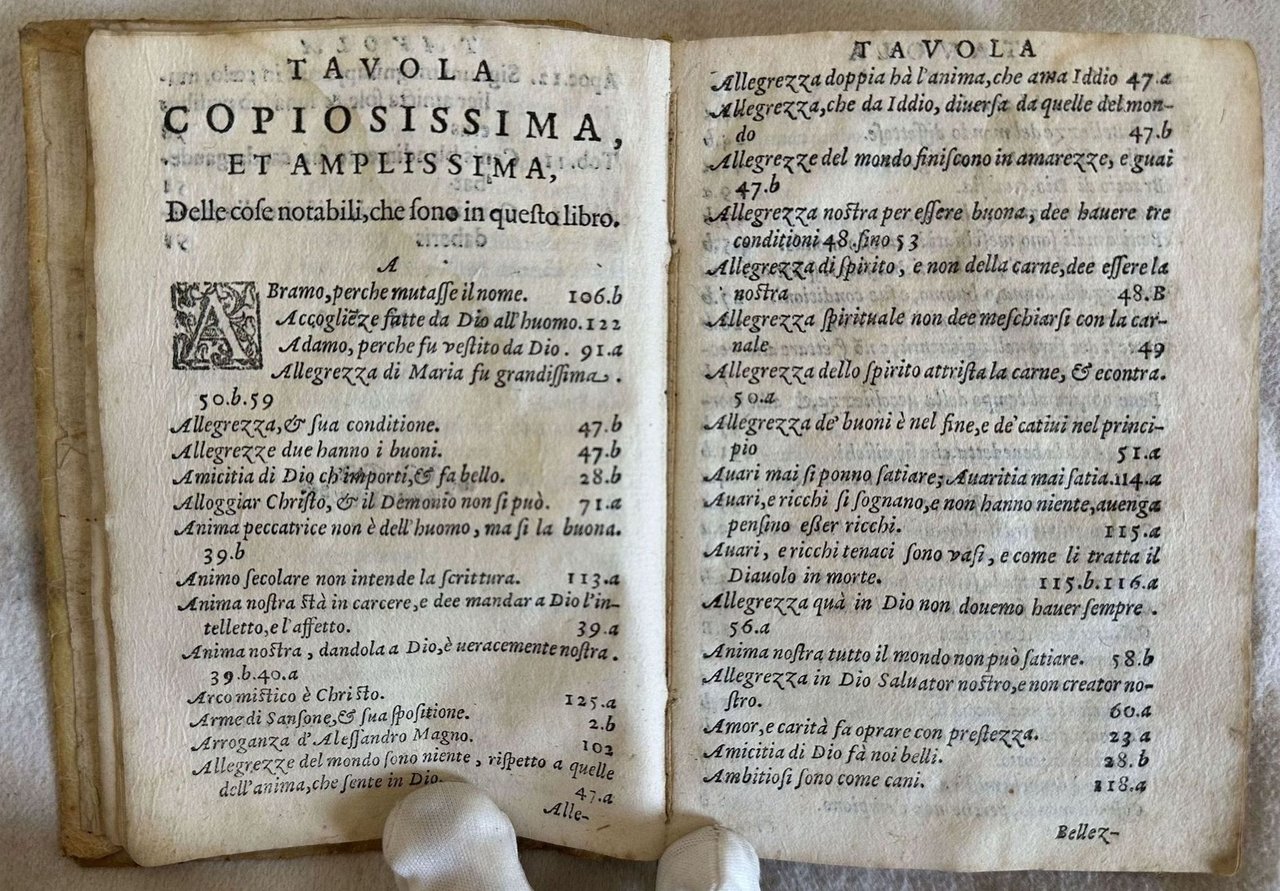 TAVOLA
COPIOSISSIMA,
ET AMPLISSIMA,
Delle cose notabili, che sono in questo libro.
A
ABramo, perche mutasse il nome. 106.b
Accogliēze fatte da Dio all'huomo. 122
Adamo, perche fu vestito da Dio. 91.a
Allegrezza di Maria fu grandissima.
50.b.59
Allegrezza, & sua conditione. 47.b
Allegrezze due hanno i buoni. 47.b
Amicitia di Dio ch'importi, & fa bello. 28.b
Alloggiar Christo, & il Demonio non si può. 71.a
Anima peccatrice non è dell'huomo, ma si la buona.
39.b
Animo secolare non intende la scrittura. 113.a
Anima nostra stà in carcere, e dee mandar a Dio l'in-
telletto, e l'affetto. 39.a
Anima nostra, dandola a Dio, è ueracemente nostra.
39.b.40.a
Arco mistico è Christo. 125.a
Arme di Sansone, & sua spositione. 2.b
Arroganza d'Alessandro Magno. 102
Allegrezze del mondo sono niente, rispetto a quelle
dell'anima, che sente in Dio. 47.a
Alle-
TAVOLA
Allegrezza doppia hà l'anima, che ama Iddio 47.a
Allegrezza, che da Iddio, diuersa da quelle del mon-
do 47.b
Allegrezze del mondo finiscono in amarezze, e guai
47.b
Allegrezza nostra per essere buona, dee hauere tre
conditioni 48.fino 53
Allegrezza di spirito, e non della carne, dee essere la
nostra 48.B
Allegrezza spirituale non dee meschiarsi con la car-
nale 49
Allegrezza dello spirito attrista la carne, & econtra.
50.a
Allegrezza de' buoni è nel fine, e de' catiui nel princi-
pio 51.a
Auari mai si ponno satiare; Auaritia mai satia. 114.a
Auari, e ricchi si sognano, e non hanno niente, auenga
pensino eßer ricchi. 115.a
Auari, e ricchi tenaci sono vasi, e come li tratta il
Diauolo in morte. 115.b.116.a
Allegrezza quà in Dio non douemo hauer sempre.
56.a
Anima nostra tutto il mondo non può satiare. 58.b
Allegrezza in Dio Saluator nostro, e non creator no-
stro. 60.a
Amor, e carità fa oprare con prestezza. 23.a
Amicitia di Dio fà noi belli. 28.b
Ambitiosi sono come cani. 218.a
Bellez-